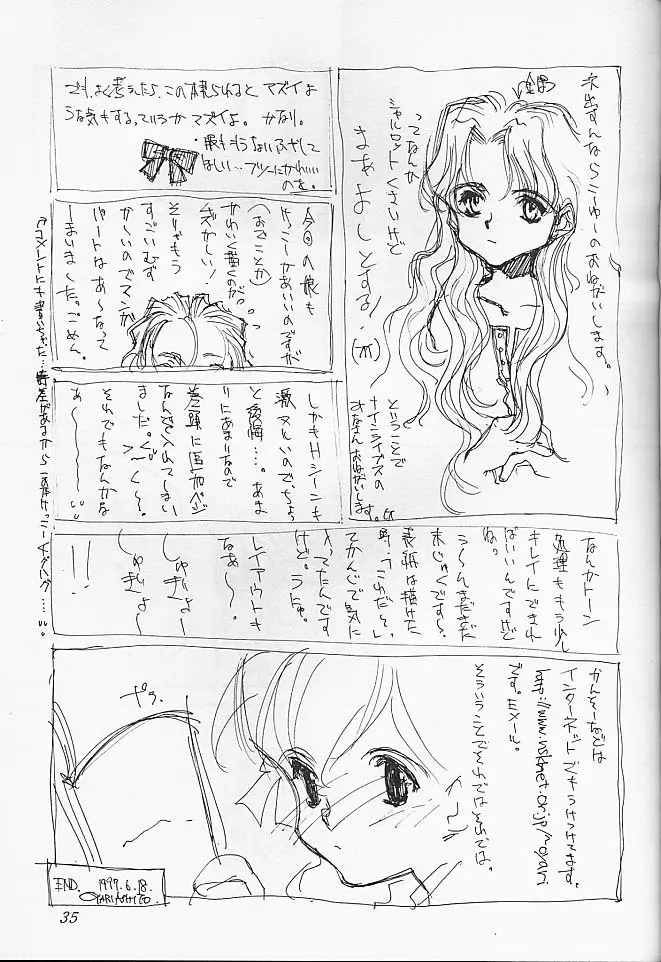 ネ出すんならこーゆーのおねがいします。
ってなんか
シャルロットくさいけど
まぁよしとする!
ということで
ナインライブスの
みなさんおねがいします。
でも、よく考えたら、この
マズイよ
うな気もする。ていうかマズイよ。かなり。
ほしい…フツーにかわいい
のを。
今回の娘も
けっこーかあいいのですが
(おでことか)
かわいく描くのが
ズかしい!
そりゃもう
すごいむず
かしいのでマンガ
パートはあーなって
しまいました。ごめん。
しかもHシーンも
激ヌルいので、ちょっ
と後悔…。あま
りにあまりなので
巻頭に追加ページ
なんぞ入れてしまい
ました。ぐ
ぐ〜。
それでもなんかな
あ〜
なんかトーン
処理をもう少し
キレイにできれ
ばいいんですけど
ね。
う〜んまだまだ
未じゅくです〜。
表紙は描けた
時、「これだ!」
てかんじで気に
入ってたんです
けど。うにゅ。
レイアウトも
なぁ〜。
しゅぎょー
しゅぎょ〜
!!
かんそーなどは
インターネットでもうけつけてます。
http://www.nsknet.or.jp/~oyari
です。Eメール。
そういうことでそれではそれでは。
END. 1997.6.18.
OYARI ASHITO.
35